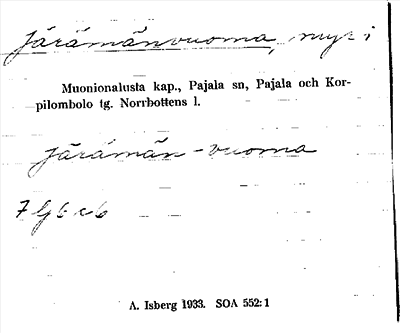 Järämänvuoma, myr i
Muonionalusta kap., Pajala sn, Pajala och Kor-
pilombolo tg. Norrbottens l.
Järämän-vuoma
A. Isberg 1933. SOA 552:1